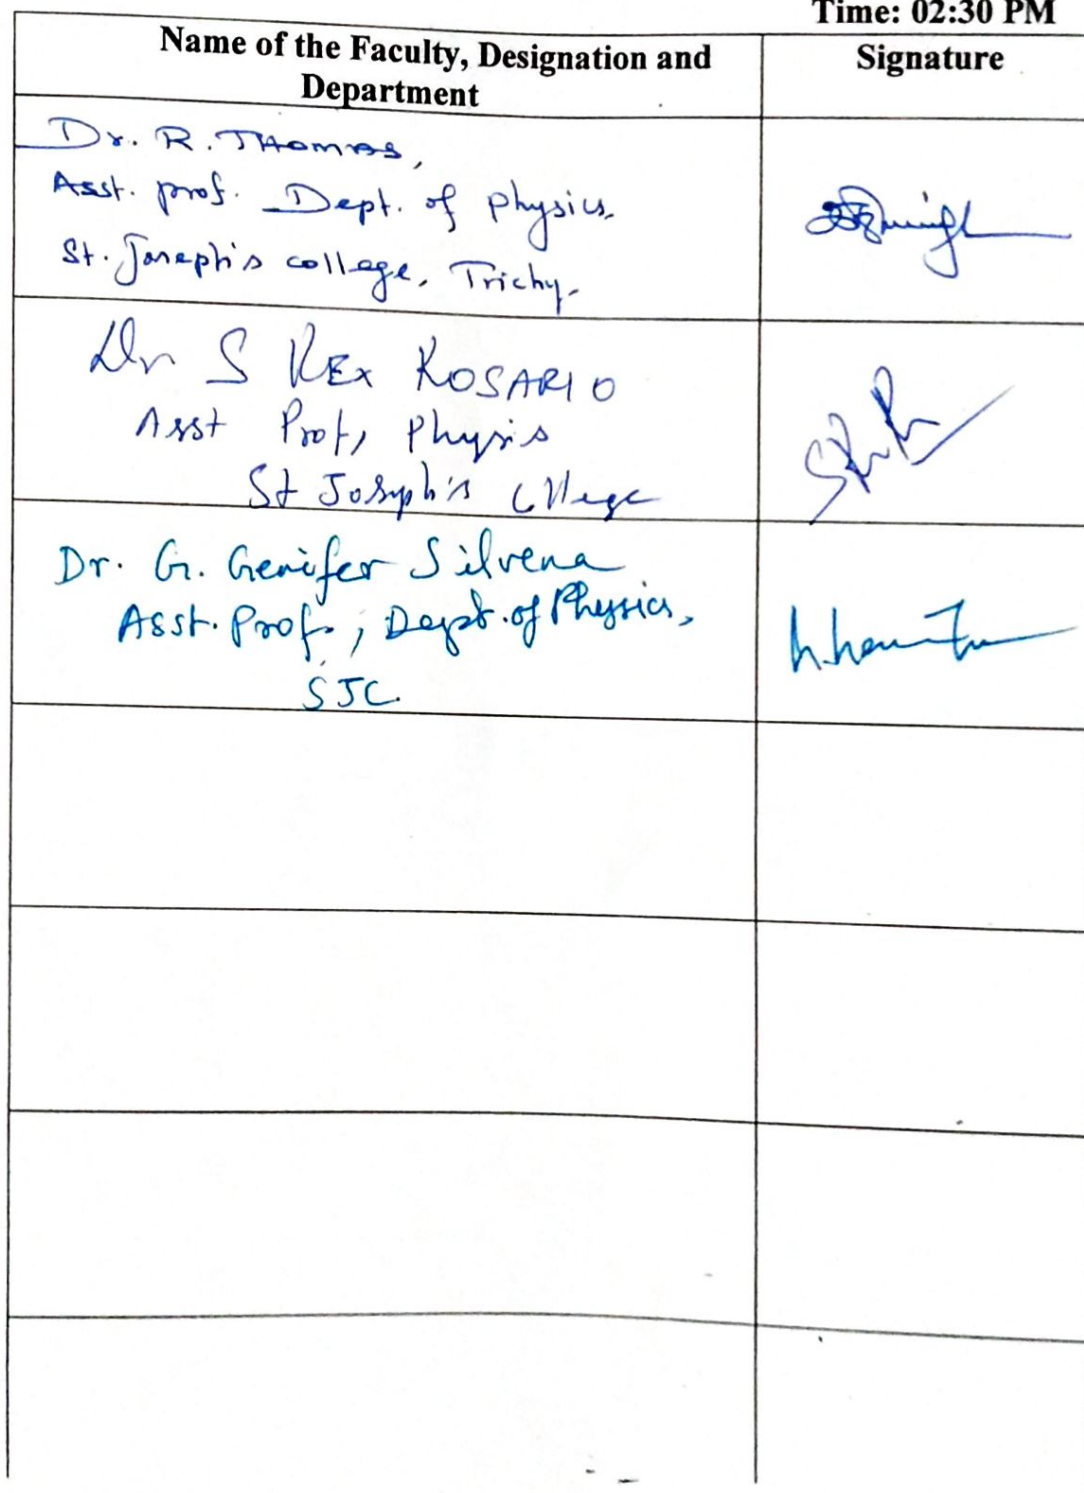 Time: 02:30 PM
Name of the Faculty, Designation and
Department
Signature
Dr. R. THOMAS,
Asst. prof. Dept. of physics,
St. Joseph's college, Trichy.
Dr S REX ROSARIO
Asst Prof, Physis
St Joseph's College
Dr. G. Genifer Silvena
Asst. Prof., Dept. of Physics,
SJC.